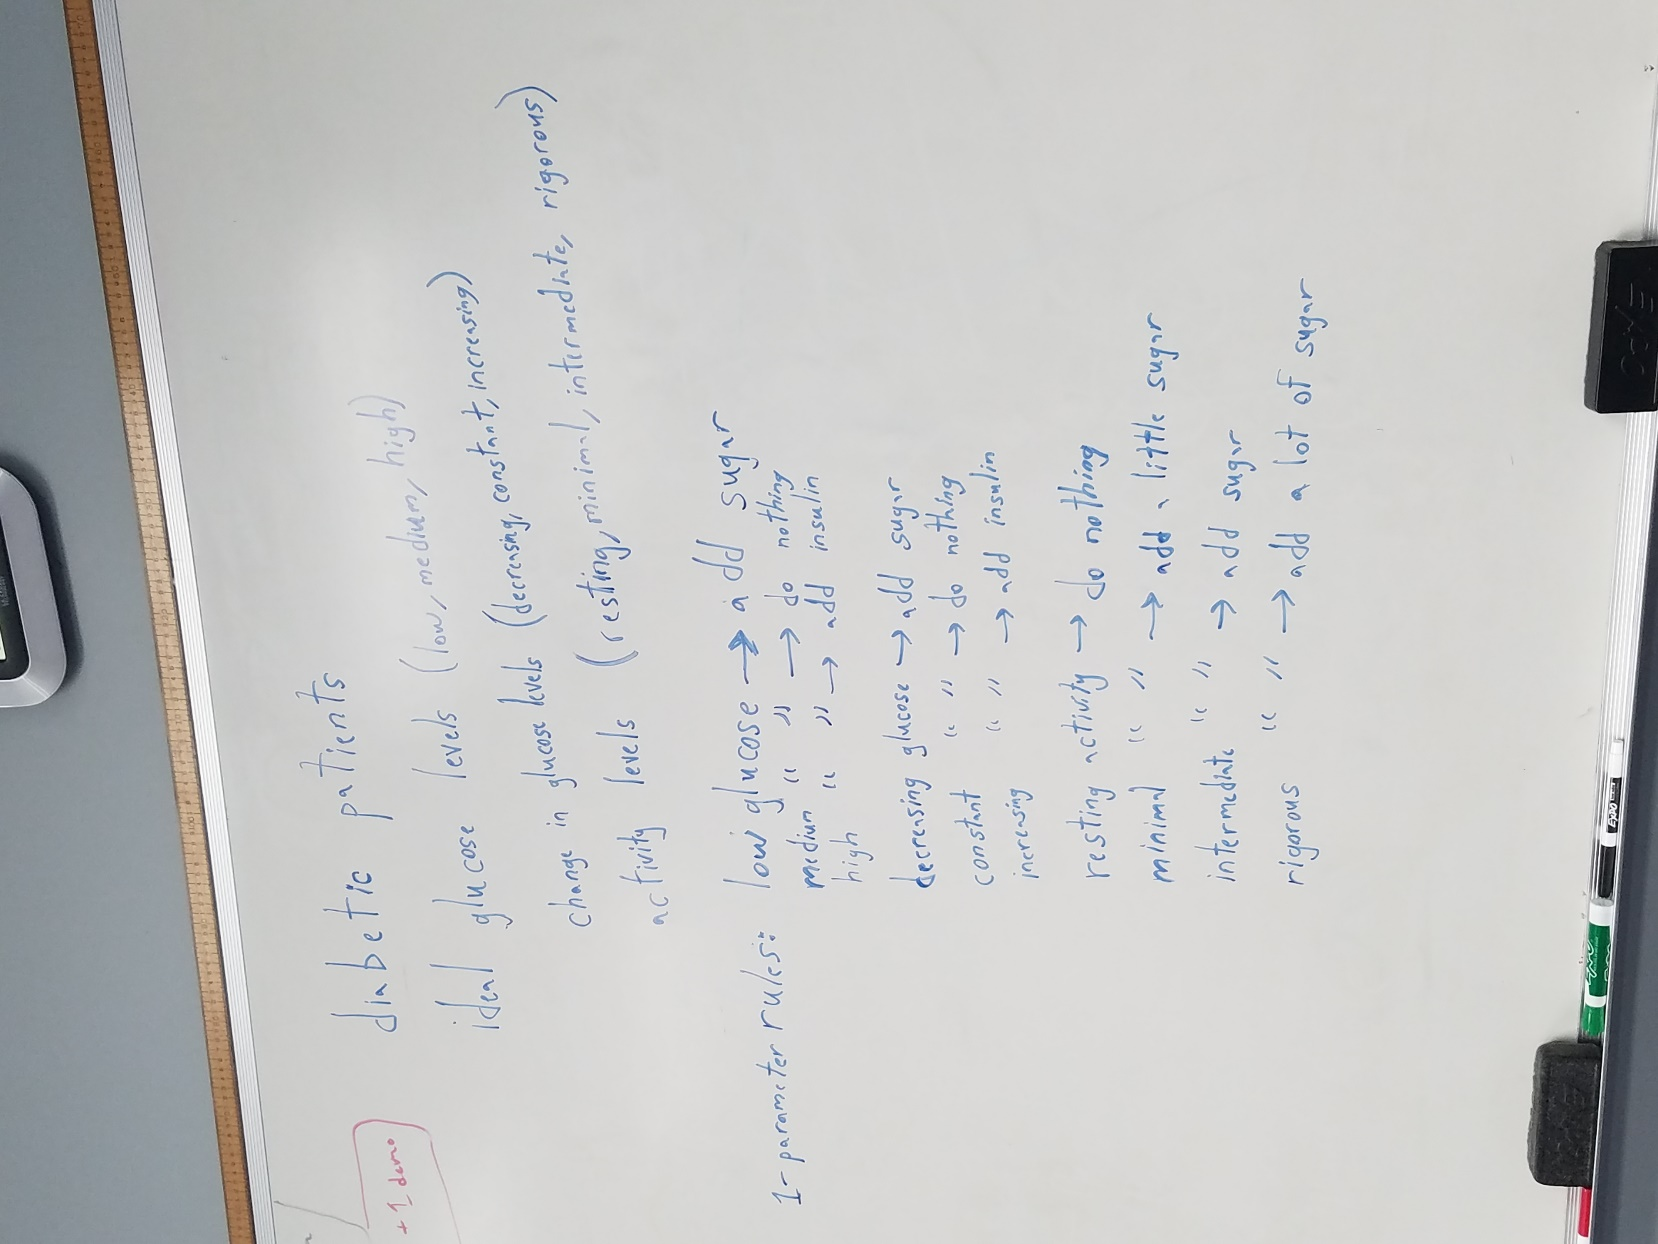 diabetic patients
ideal glucose levels (low, medium, high)
change in glucose levels (decreasing, constant, increasing)
activity levels (resting, minimal, intermediate, rigorous)
1-parameter rules: low glucose → add sugar
medium " " → do nothing
high " " → add insulin
decreasing glucose → add sugar
constant " " → do nothing
increasing " " → add insulin
resting activity → do nothing
minimal " " → add a little sugar
intermediate " " → add sugar
rigorous " " → add a lot of sugar
+ 1 demo
EXPO